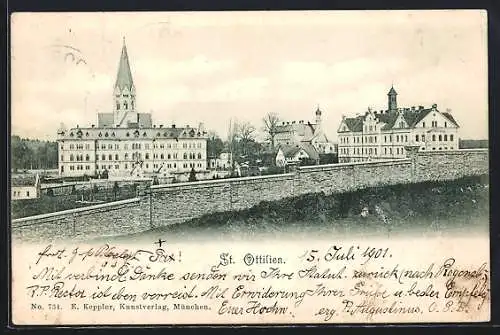 St. Ottilien.
15. Juli 1901.
Mit verbindl. Danke senden wir Ihre Statut. zurück (nach Regensb.)
P. P. Rector ist eben verreist. Mit Erwiderung Ihrer Grüße u. bester Empfehlg.
Euer Hochw. erg. P. Augustinus, O. S. B.
No. 751. E. Keppler, Kunstverlag, München.